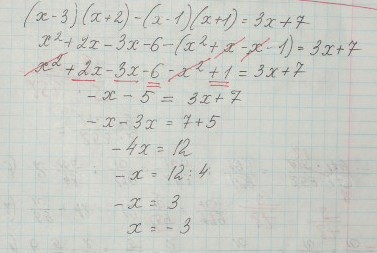 (x-3)(x+2)-(x-1)(x+1)=3x+7
x²+2x-3x-6-(x²+x-x-1)=3x+7
x²+2x-3x-6-x²+1=3x+7
-x-5=3x+7
-x-3x=7+5
-4x=12
-x=12:4
-x=3
x=-3